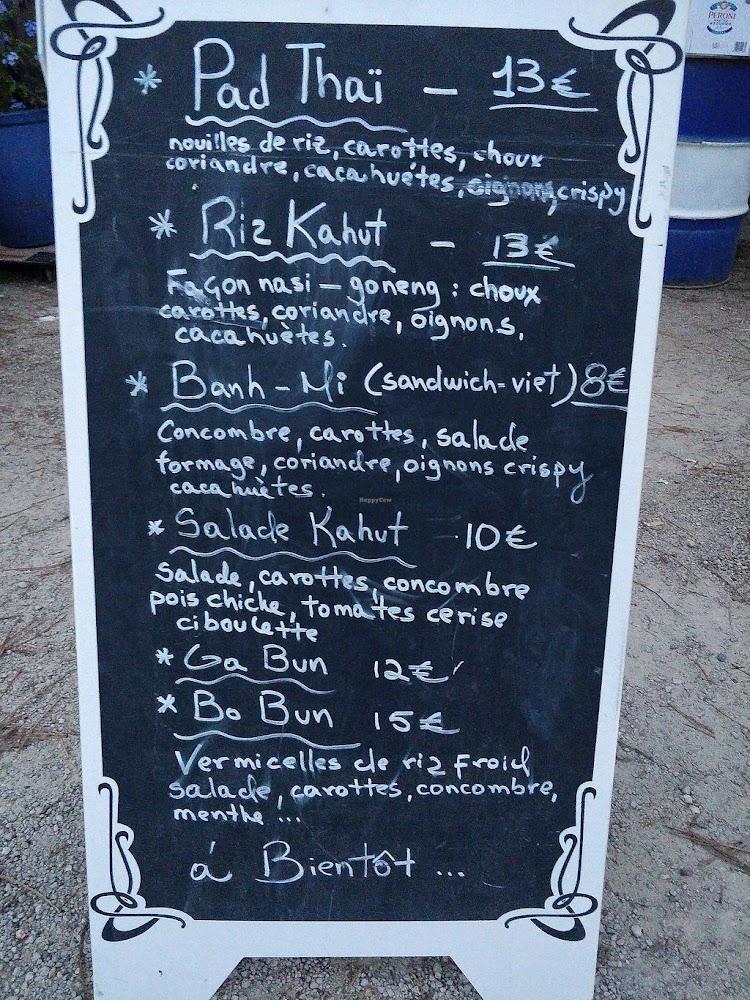 PERONI
* Pad Thaï - 13€
nouilles de riz, carottes, choux
coriandre, cacahuétes, oignons, crispy
* Riz Kahut - 13€
Façon nasi - goneng : choux
carottes, coriandre, oignons,
cacahuètes.
* Banh - Mi (sandwich-viet) 8€
Concombre, carottes, salade
formage, coriandre, oignons crispy
cacahuètes.
* Salade Kahut 10€
Salade, carottes, concombre
pois chiche, tomates cerise
ciboulette
* Ga Bun 12€
* Bo Bun 15€
Vermicelles de riz froid
salade, carottes, concombre,
menthe ...
á Bientôt ...
HappyCow